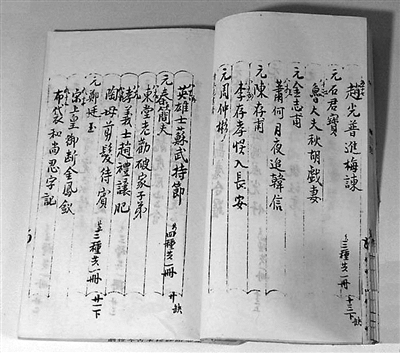 趙光普進梅諫
三種共一冊 十三下 缺
元石君寶
魯大夫秋胡戲妻
元金志甫
蕭何月夜追韓信
元陳存甫
李存孝悮入長安
元周仲彬
英雄士蘇武持節
四種共一冊 廿 缺
元秦簡夫
東堂老勸破家子弟
孝義士趙禮讓肥
陶母剪髮待賓
三種共一冊 廿一下
元鄭廷玉
宋上皇御斷金鳳釵
布袋和尚忍字記